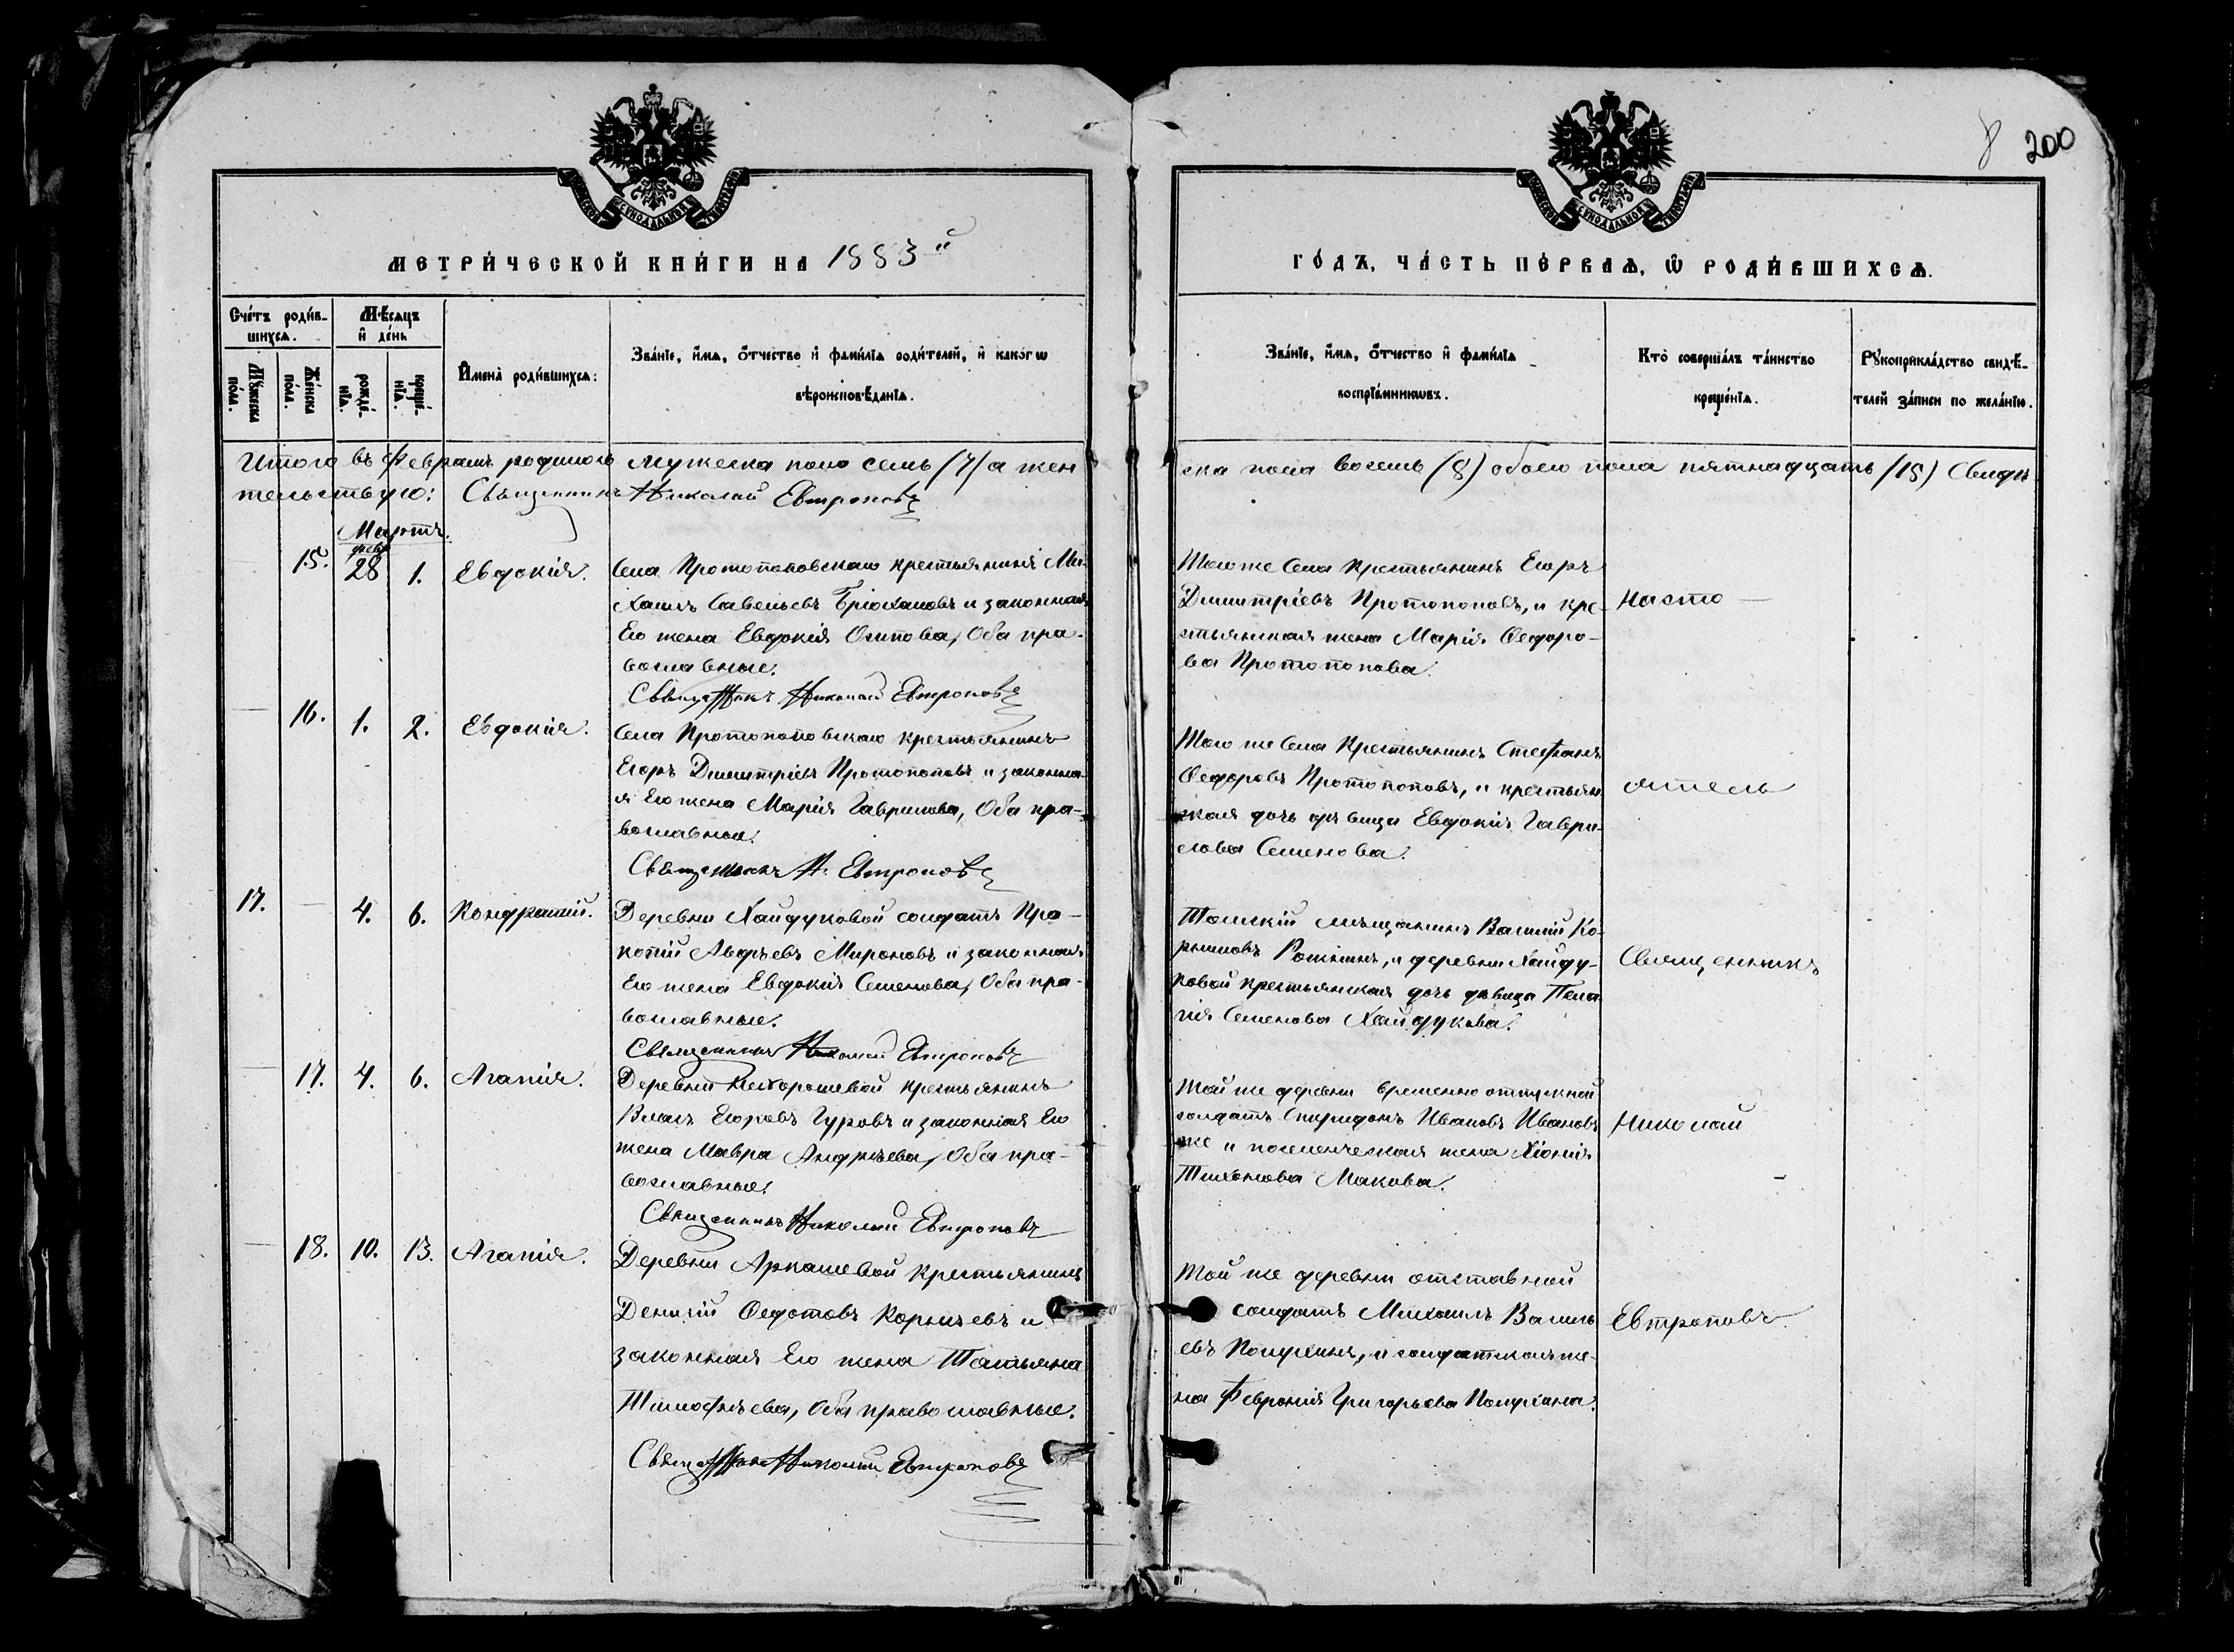 8 200
МЕТРИ́ЧЕСКОЙ КНИ́ГИ НА 1883 й
ГО́ДЪ, ЧА́СТЬ ПЕ́РВАѦ, Ѽ РОДИ́ВШИХСѦ.
Сче́тъ роди́в-
шихсѧ.
Мѣ́сяцъ
и҆ де́нь
Мꙋ́жеска
по́ла.
Же́нска
по́ла.
рожде́-
нїѧ.
креще́-
нїѧ.
И҆мена̀ роди́вшихсѧ:
Зва́нїе, и҆́мѧ, ѻ҆́тчество и҆ фами́лїѧ роди́телей, и҆ како́гѡ
вѣроисповѣ́данїѧ.
Зва́нїе, и҆́мѧ, ѻ҆́тчество и҆ фами́лїѧ
воспрїе́мникѡвъ.
Кто̀ соверша́лъ та́инство
креще́нїѧ.
Рꙋкоприкла́дство свидѣ́-
телей за́писи по жела́нїю.
Итого въ Февралѣ родилось мужеска пола семь (7) а жен
ска пола восемь (8) обоего пола пятнадцать (15) Свидѣ
тельствую: Священникъ Николай Евтроповъ
Мартъ.
февр
15. 28 1. Евдокія.
Села Протопоповскаго крестьянинъ Ми-
хаилъ Савельевъ Брюхановъ и законная
Его жена Евдокія Осипова, Оба пра-
вославные.
Священникъ Николай Евтроповъ
Того же Села Крестьянинъ Егоръ
Димитріевъ Протопоповъ, и кре-
стьянская жена Марія Ѳедоро-
ва Протопопова.
Насто —
16. 1. 2. Евдокія.
Села Протопоповскаго крестьянинъ
Егоръ Димитріевъ Протопоповъ и законна-
я Его жена Марія Гаврилова, Оба пра-
вославные.
Священникъ Н. Евтроповъ
Того же Села Крестьянинъ Стефанъ
Ѳедоровъ Протопоповъ, и крестьян
ская дочь дѣвица Евдокія Гаври-
лова Семенова.
ятель
17. — 4. 6. Кондратій.
Деревни Хайдуковой солдатъ Про-
копій Авдѣевъ Мироновъ и законная
Его жена Евдокія Семенова, Оба пра-
вославные.
Священникъ Николай Евтроповъ
Томскій мѣщанинъ Василій Ко-
рниловъ, и деревни Хайду-
ковой крестьянская дочь дѣвица Пела
гія Семенова Хайдукова.
Священникъ
17. 4. 6. Агапія.
Деревни Нехорошевой крестьянинъ
Власъ Егоровъ Гуровъ и законная Его
жена Мавра Андреѣва, Оба пра-
вославные.
Священникъ Николай Евтроповъ
Той же деревни временно отпускной
солдатъ Спиридонъ Ивановъ Ивановъ
же и поселенческая жена Хіонія
Тихонова Макова.
Николай
18. 10. 13. Агапія.
Деревни Аркашевой крестьянинъ
Денисій Ѳедотовъ Корнѣевъ и
законная Его жена Татьяна
Тимофѣева, Оба православные.
Священникъ Николай Евтроповъ
Той же деревни отставной
солдатъ Михаилъ Василь
евъ Полухинъ, и солдатская же-
на Февронія Григорьева Полухина.
Евтроповъ.